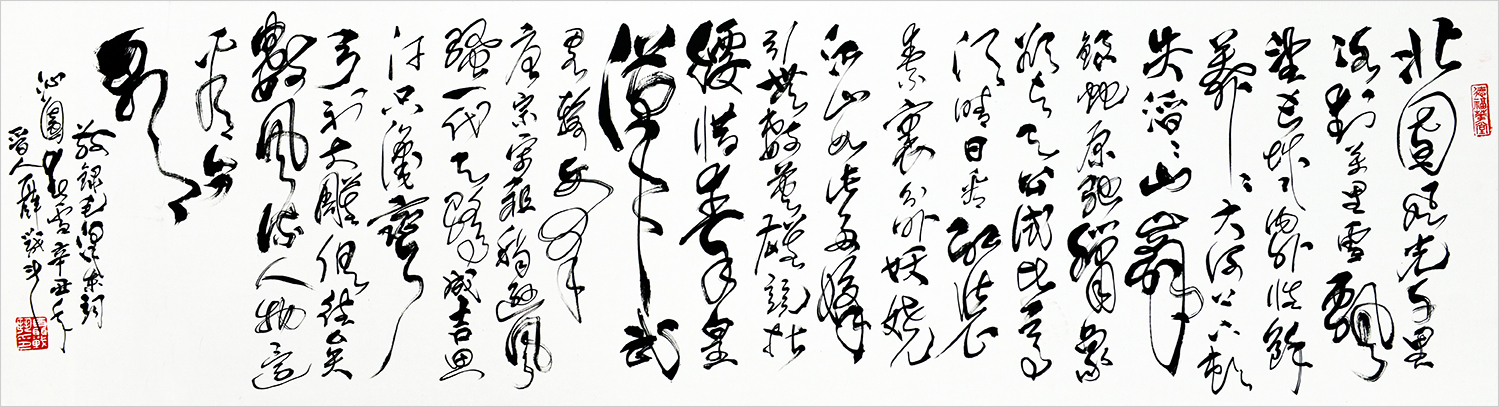 北國風光千里
冰封万里雪飄
望长城内外惟餘
莽莽大河上下顿
失滔滔山舞
銀蛇原驰蠟象
欲与天公试比高
须晴日看红装
素裹分外妖娆
江山如此多娇
引無數英雄競折
腰惜秦皇
漢武
略輸文采
唐宗宋祖稍逊風
骚一代天骄成吉思
汗只識彎
弓射大雕俱往矣
數風流人物还
看今
朝
敬録毛澤東詞
沁園春雪辛丑年
晋人薛戰